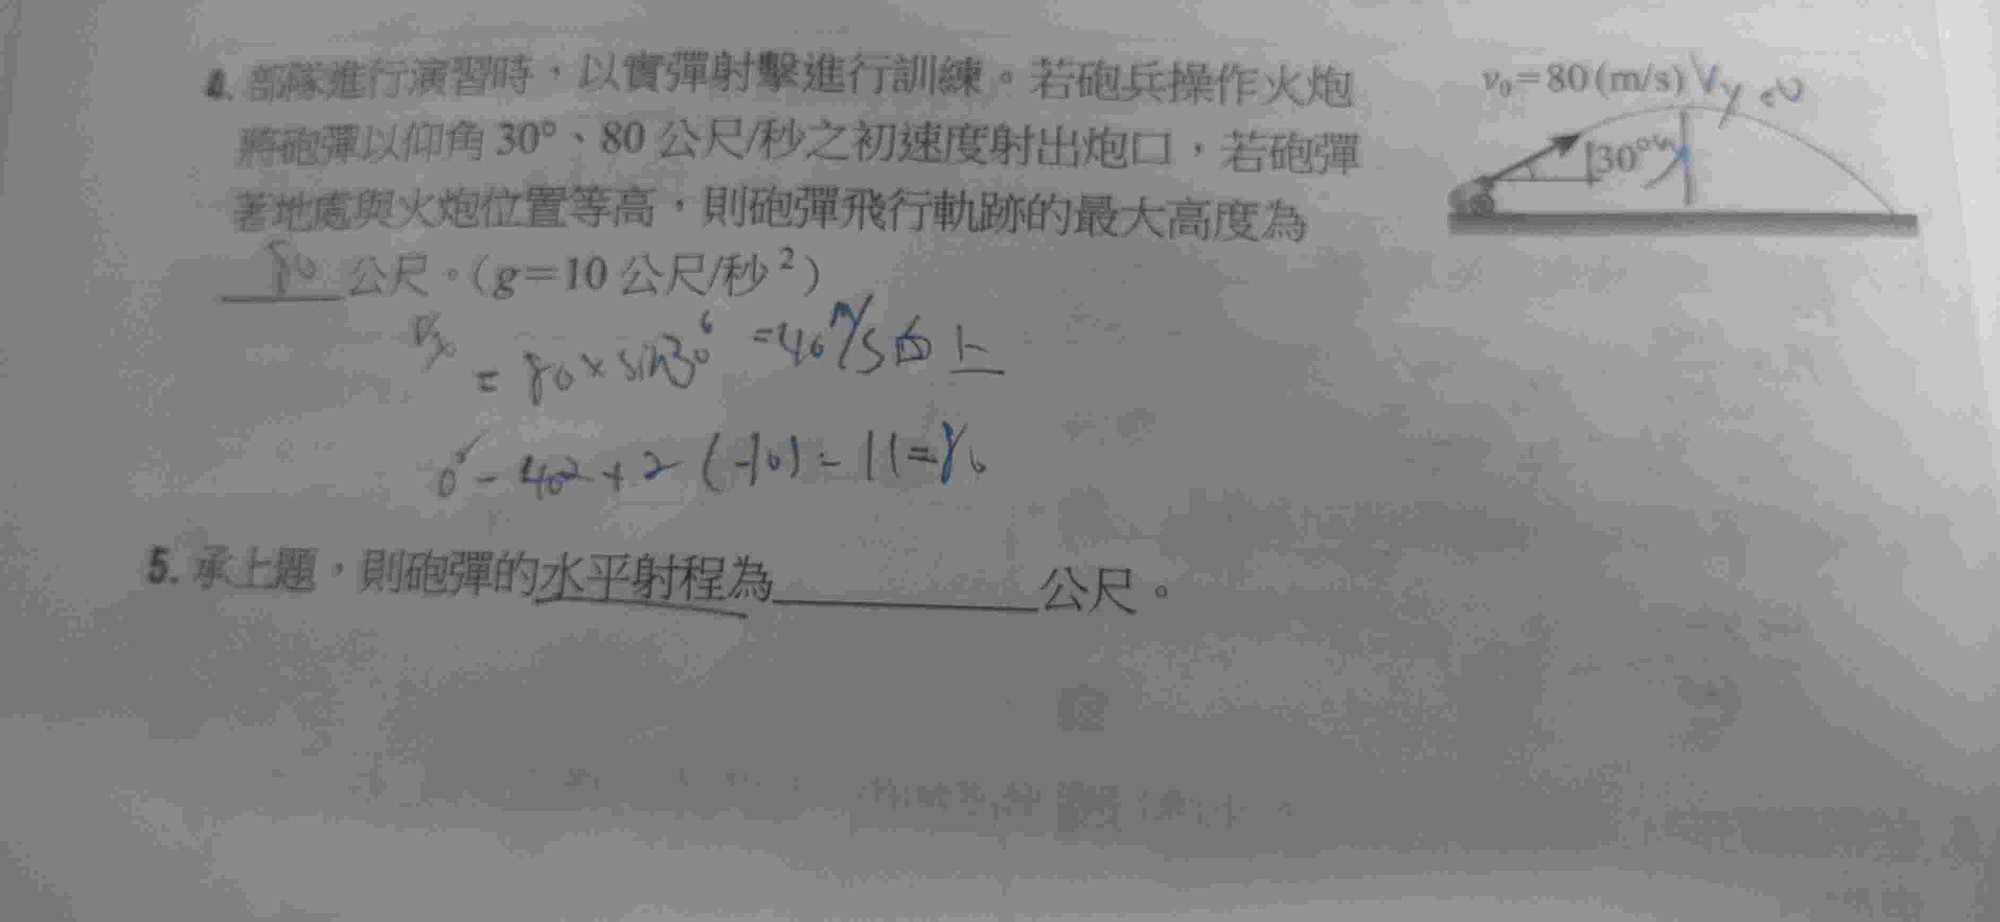 4. 部隊進行演習時，以實彈射擊進行訓練。若砲兵操作火炮
將砲彈以仰角30°、80公尺/秒之初速度射出炮口，若砲彈
著地處與火炮位置等高，則砲彈飛行軌跡的最大高度為
80 公尺。(g=10公尺/秒²)
v₀=80(m/s) Vy=0
30°
= 80×sin30° =40 m/s 向上
0²=40²+2(-10)= H=80
5. 承上題，則砲彈的水平射程為______公尺。